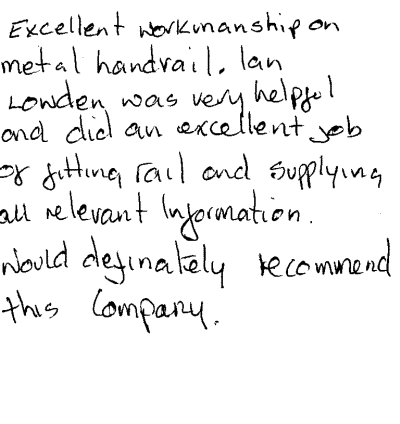 Excellent workmanship on
metal handrail. Ian
Lowden was very helpful
and did an excellent job
of fitting rail and supplying
all relevant Information.
Would definately recommend
this Company.